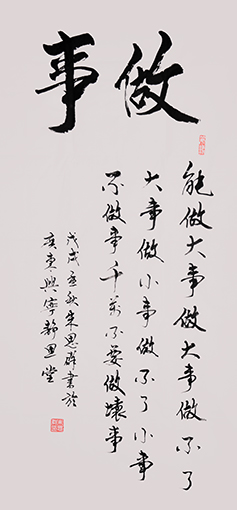 做事
能做大事做大事做不了
大事做小事做不了小事
不做事千萬不要做壞事
戊戌孟秋朱思書於
廣東興寧靜思堂